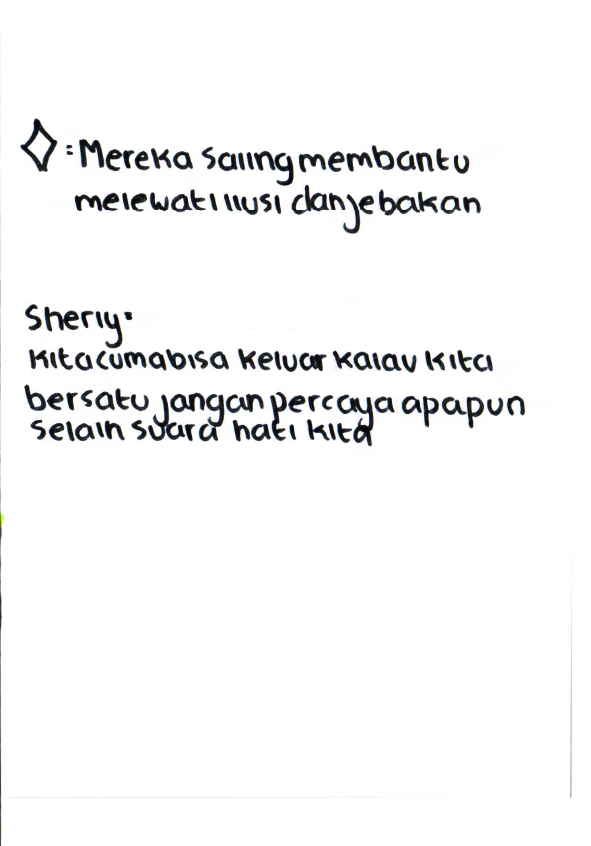 ◇: Mereka saling membantu
melewati ilusi dan jebakan
Sherly:
Kita cuma bisa keluar kalau kita
bersatu jangan percaya apapun
selain suara hati kita